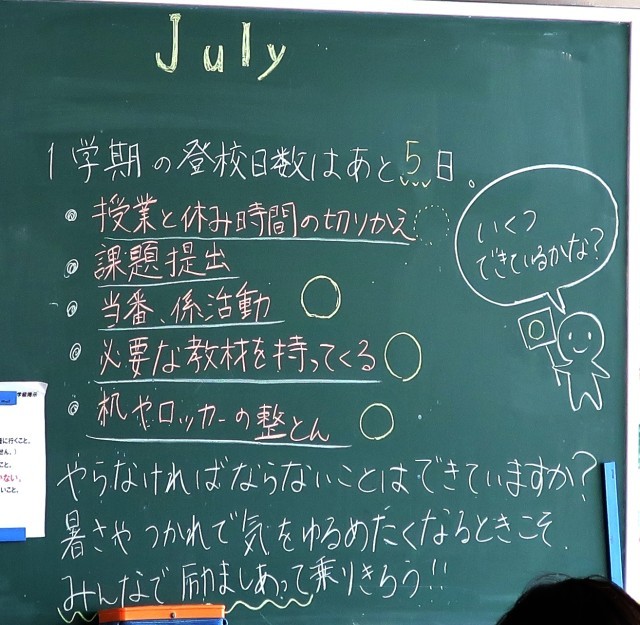 July
1学期の登校日数はあと5日。
授業と休み時間の切りかえ
課題提出
当番、係活動
必要な教材を持ってくる
机やロッカーの整とん
いくつ
できているかな?
やらなければならないことはできていますか?
暑さやつかれで気をゆるめたくなるときこそ
みんなで励ましあって乗りきろう!!